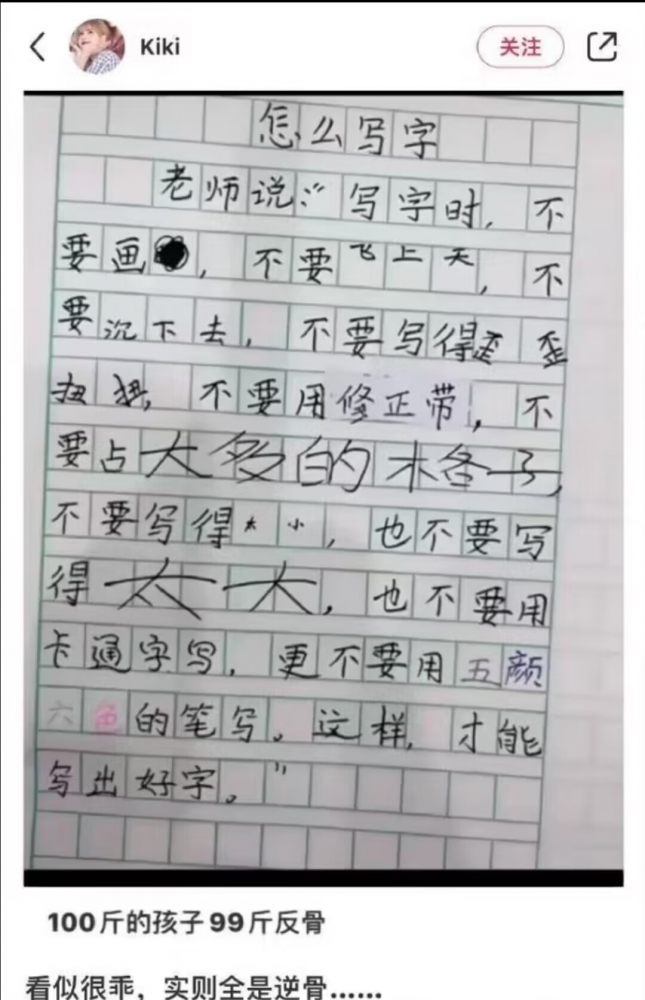 Kiki
关注
怎么写字
老师说:“写字时,不
要画,不要飞上天,不
要沉下去,不要写得歪歪
扭扭,不要用修正带,不
要占太多的格子,
不要写得太小,也不要写
得太大,也不要用
卡通字写,更不要用五颜
六色的笔写。这样,才能
写出好字。”
100斤的孩子99斤反骨
看似很乖,实则全是逆骨......